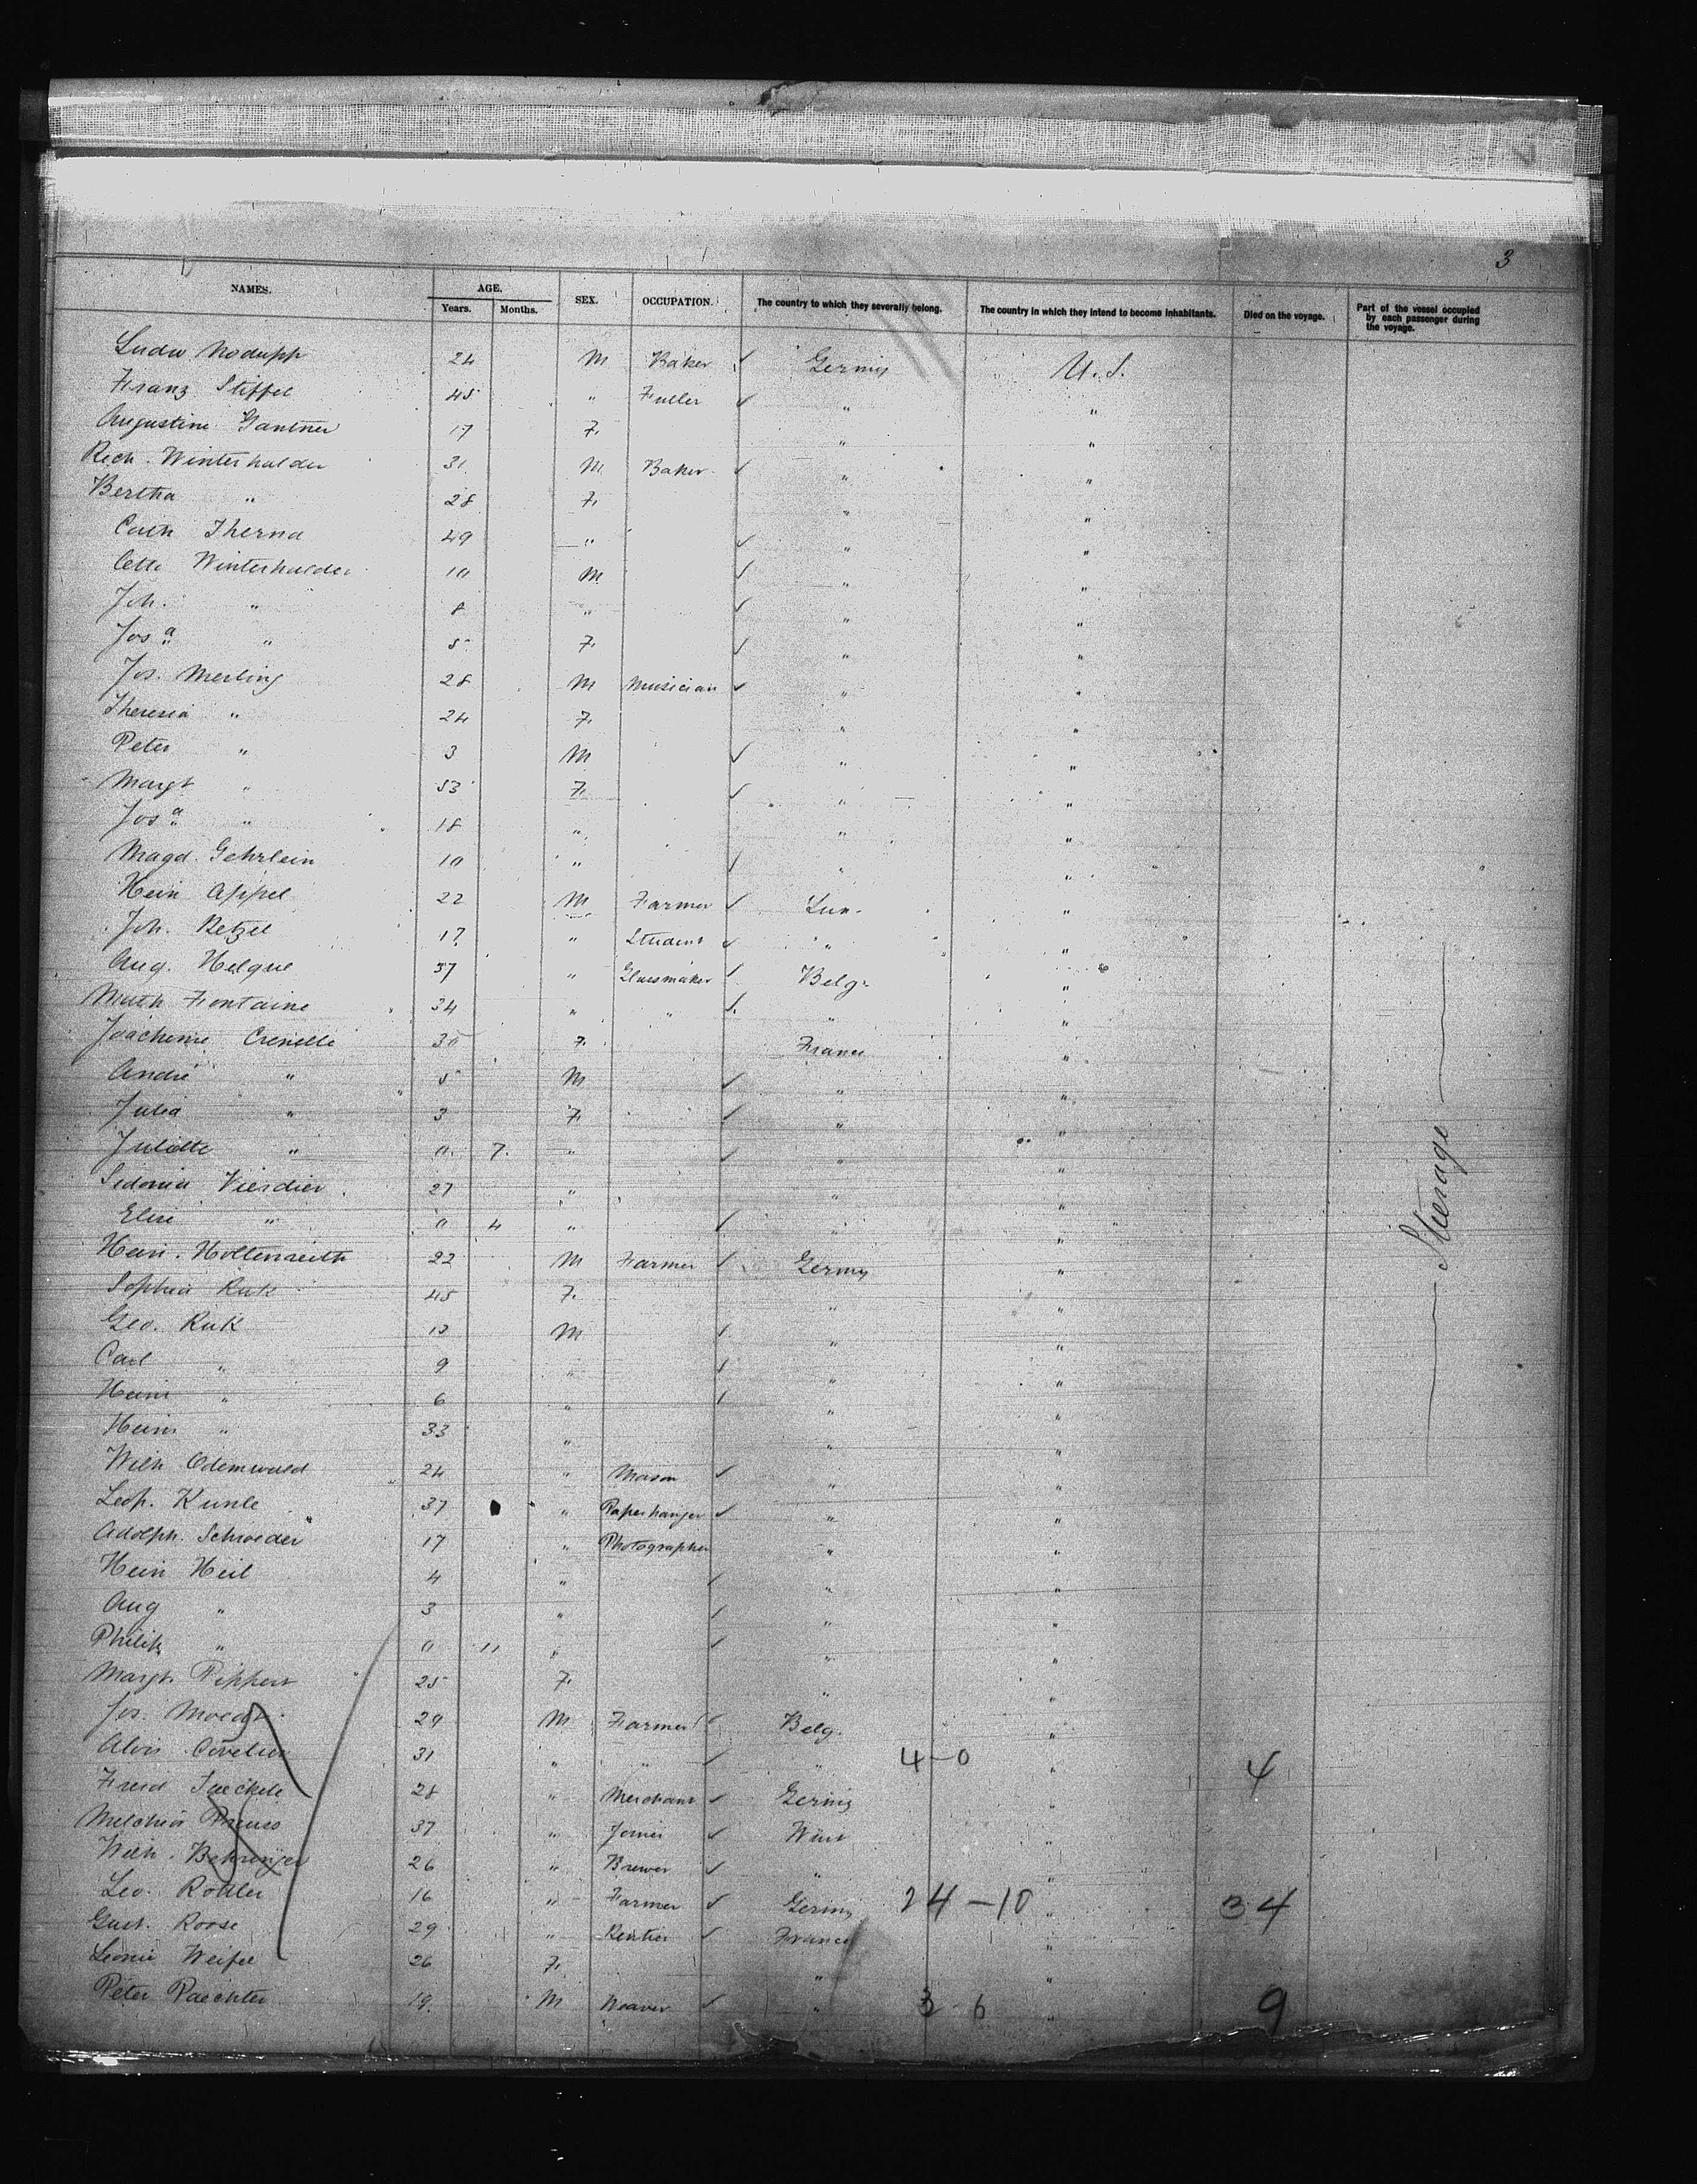 3
NAMES. AGE. Years. Months. SEX. OCCUPATION. The country to which they severally belong. The country in which they intend to become inhabitants. Died on the voyage. Part of the vessel occupied by each passenger during the voyage.
24 M Baker ✓ Germy U.S.
Franz Stiffel 45 " Fuller ✓ " "
Augustine Gantner 17 F. " "
Rich. Winterhalder 31 M Baker ✓ " "
Bertha " 28 F. " "
Cath Therna 49 " ✓ " "
Winterhalder 10 M ✓ " "
Joh. " 8 " ✓ " "
Josa " 5 F. ✓ " "
Jos. Merling 28 M Musician ✓ " "
Theresia " 24 F. " "
Peter " 3 M ✓ " "
Margt " 53 F. ✓ " "
Josa " 18 " " "
Magd. Gehrlein 10 " ✓ " "
Hein Appel 22 M Farmer ✓ "
Joh. Retzel 17 " Student ✓ " "
Aug. Helque 37 " Glassmaker ✓ Belg. "
Math Fontaine 34 " " ✓ " "
Crenelle 30 F. France "
André " 5 M ✓ " "
Julia " 3 F. ✓ " "
Juliette " 0 7 " ✓ " "
Sidonia Vierdier 27 " " "
Elise " 0 4 " ✓ " "
Hein. Holtenreith 22 M Farmer ✓ Germy "
Sophia Ruk 45 F. " "
Geo. Ruk M ✓ " "
Carl " 9 " ✓ " "
Hein " 6 " ✓ " "
Hein " 33 " " "
Wilh Odemwald 24 " Mason ✓ " "
Leop. Kunle 37 " Paperhanger ✓ " "
Adolph. Schroeder 17 " Photographer " "
Hein Heil 4 " ✓ " "
Aug " 3 " ✓ " "
Philip " 0 11 " ✓ " "
Margt. Pippert 25 F. " "
Jos. 29 M Farmer ✓ Belg. "
Alois 31 " " ✓ " 4-0 " 4
Jaeckele 28 " Merchant ✓ Germy "
Melchior 37 " Joiner ✓ Würt "
Wilh. Behringer 26 " Brewer ✓ " "
Leo. Kohler 16 " Farmer ✓ Germy 24-10 " 34
Gust. Roose 29 " Rentier ✓ France "
Leonie 26 F. " "
Peter Paechter 19 M Weaver ✓ " 3 6 " 9
Steerage